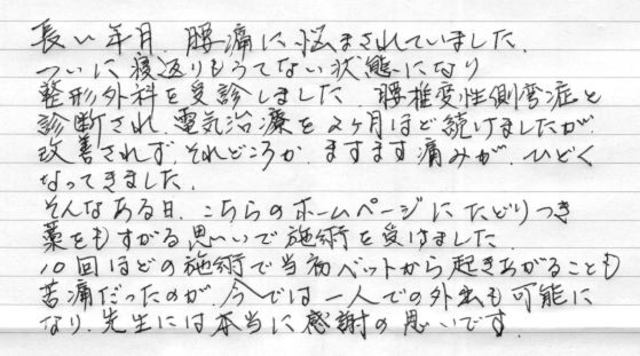 長い年月、腰痛に悩まされていました。
ついに寝返りもうてない状態になり
整形外科を受診しました。腰椎変性側弯症と
診断され、電気治療を2ヶ月ほど続けましたが、
改善されず、それどころか、ますます痛みが、ひどく
なってきました。
そんなある日、こちらのホームページにたどりつき
藁をもすがる思いで施術を受けました。
10回ほどの施術で当初ベットから起きあがることも
苦痛だったのが、今では一人での外出も可能に
なり、先生には本当に感謝の思いです。